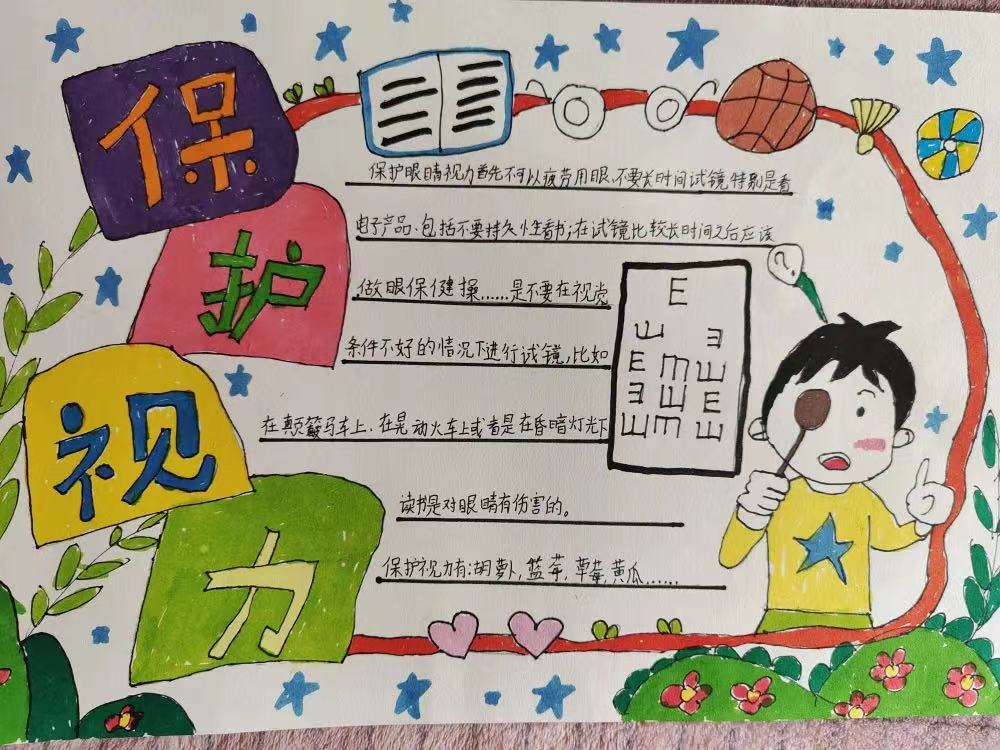 保护视力
保护眼睛视力首先不可以疲劳用眼、不要长时间试镜特别是看
电子产品、包括不要持久性看书;在试镜比较长时间之后应该
做眼保健操……是不要在视觉
条件不好的情况下进行试镜,比如
在颠簸马车上、在晃动火车上或者是在昏暗灯光下
读书是对眼睛有伤害的。
保护视力有:胡萝卜,蓝莓,草莓,黄瓜……
?
E
E E
E E E
E E E
E E E